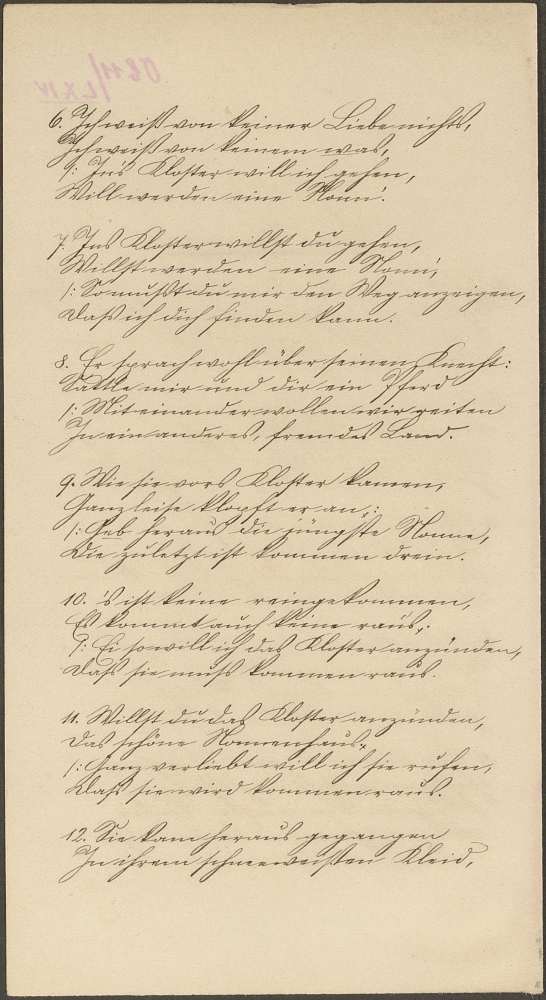 6. Ich weiß von keiner Liebe nichts,
Ich weiß von keinem was,
/: In's Kloster will ich gehen,
Will werden eine Nonn'.
7. Ins Kloster willst du gehen,
Willst werden eine Nonn',
/: So mußt du mir den Weg anzeigen,
Daß ich dich finden kann.
8. Er sprach wohl über seinen Knecht:
Sattle mir und dir ein Pferd
/: Miteinander wollen wir reiten
In ein anderes, fremdes Land.
9. Wie sie vors Kloster kamen,
Ganz leise klopft er an,:
/: Geb heraus die jüngste Nonne,
Die zuletzt ist kommen drein.
10. 's ist keine reingekommen,
Es kommt auch keine raus,:
/: Ei so will ich das Kloster anzünden,
Daß sie muß kommen raus.
11. Willst du das Kloster anzünden,
Das schöne Nonnenhaus,:
/: Ganz verliebt will ich sie rufen,
Daß sie wird kommen raus.
12. Sie kam heraus gegangen
In ihrem schneeweißen Kleid,